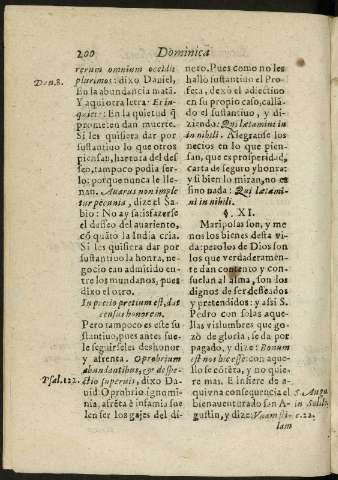 200 Dominica
rerum omnium occidit
Dan. 8. plurimos: dixo Daniel,
En la abundancia matà.
Y aqui otra letra: Et in
quiete: En la quietud q̃
prometen dan muerte.
Si les quisiera dar por
sustantiuo lo que otros
piensan, hartura del des
seo, tampoco podia ser-
lo: porque nunca le lle-
nan. Auarus non imple
tur pecunia, dize el Sa-
bio: No ay satisfazerse
el desseo del auariento,
cõ quãto la India cria.
Si les quisiera dar por
sustantiuo la honra, ne-
gocio tan admitido en-
tre los mundanos, pues
dixo el otro.
In precio pretium est, dat
census honorem.
Pero tampoco es este su
stantiuo, pues antes sue
le seguirseles deshonor
y afrenta. Oprobrium
abundantibus, & despe-
Psal. 122. ctio superuis, dixo Da-
uid Oprobrio, ignomi-
nia, afrẽta è infamia sue
len ser los gajes del di-
nero. Pues como no les
hallo sustantiuo el Pro-
feta, dexò el adiectiuo
en su propio caso, callã-
do el sustantiuo, y di-
ziendo: Qui lætamini in
in nihili. Alegranse los
necios en lo que pien-
san, que es prosperidad,
carta de seguro y honra:
y si bien lo miran, no es
sino nada: Qui lætami-
ni in nihili.
§. XI.
Mariposas son, y me
nos los bienes desta vi-
da: pero los de Dios son
los que verdaderamen-
te dan contento y con-
suelan al alma, son los
dignos de ser desseados
y pretendidos: y assi S.
Pedro con solas aque-
llas vislumbres que go-
zò de gloria, se da por
pagado, y dize: Bonum
est nos hic esse: con aque-
llo se cõtẽta, y no quie-
re mas. E infiere de a-
qui vna consequencia el
bienauenturado san A-
gustin, y dize:
S. Augu.
in Solilo.
c. 22.
lam